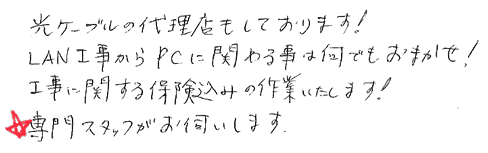 光ケーブルの代理店もしております!
LAN工事からPCに関わる事は何でもおまかせ!
工事に関する保険込みの作業いたします!
☆専門スタッフがお伺いします.